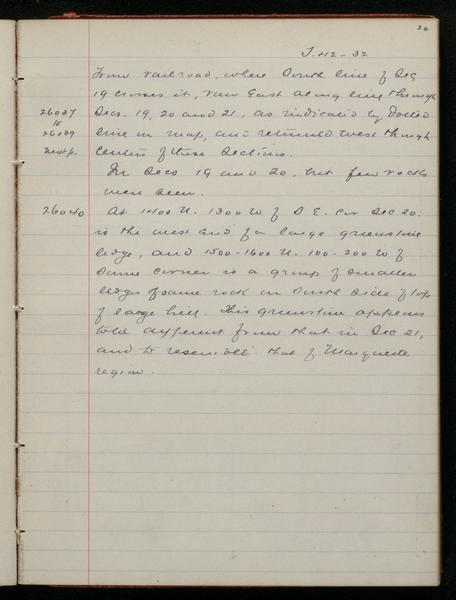 20
T. 42-32
From railroad, where South line of Sec
19 crosses it, ran East along line through
26037 Secs. 19, 20 and 21, as indicated by dotted
to
26039 line on map, and returned west through
next p. centers of these Sections.
In Secs 19 and 20, but few rocks
were seen.
26040 At 1400 N. 1300 W of S E. cor Sec 20.
is the west end of a large greenstone
ledge, and 1500-1600 N. 100-200 W of
same corner is a group of smaller
ledges of same rock on South side of top
of large hill. This greenstone appears
to be different from that in Sec 21,
and to resemble that of Marquette
region.